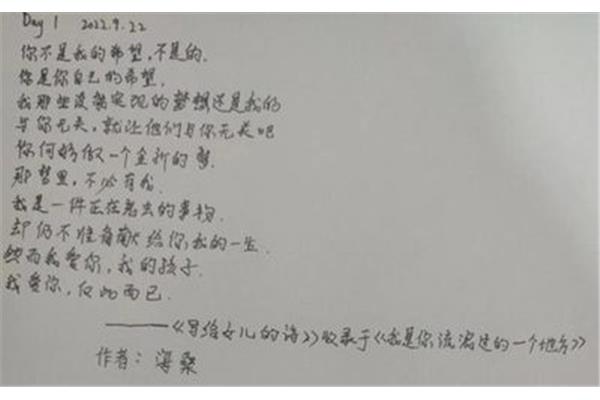 Day 1 2022.9.22
你不是我的希望,不是的.
你是你自己的希望.
我那些没能实现的梦想还是我的
与你无关,就让他们与你无关吧
你何妨做一个全新的梦.
那梦里,不必有我.
我是一件正在老去的事物.
却仍不准备献给你我的一生.
然而我爱你,我的孩子.
我爱你,仅此而已.
——《写给女儿的诗》收录于《我是你流浪过的一个地方》
作者:海桑